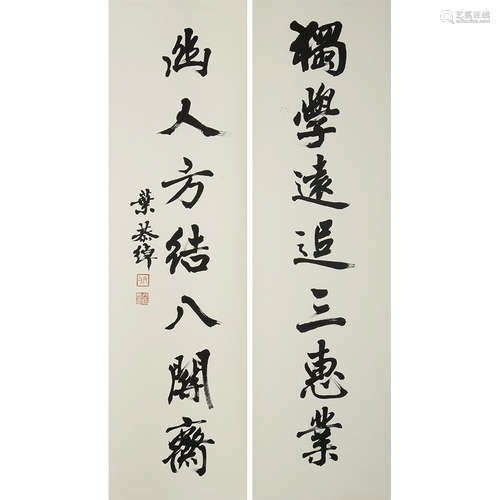 獨學遠追三惠業
幽人方結八關齋
葉恭綽